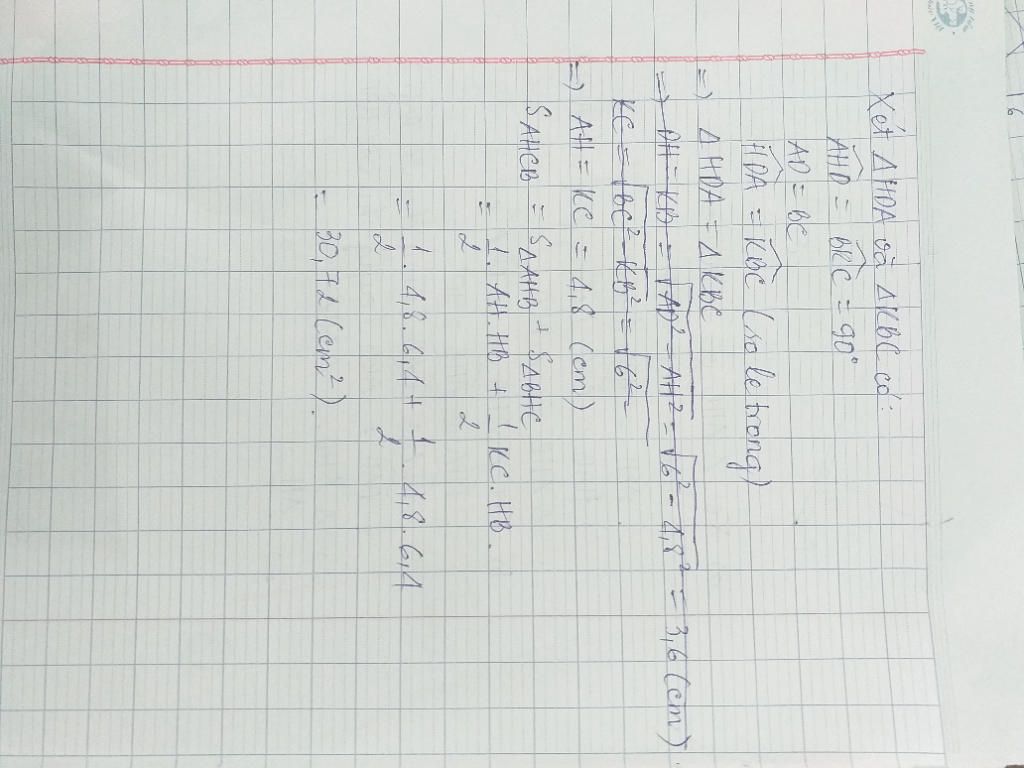 Xét ΔHDA và ΔKBC có:
AHD = BKC = 90°
AD = BC
HDA = KBC (so le trong)
=) ΔHDA = ΔKBC
=) DH = KB = √AD² - AH² = √6² - 4,8² = 3,6 (cm)
KC = √BC² - KB² = √6²
=) AH = KC = 4,8 (cm)
SAHCB = SΔAHB + SΔBHC
= 1/2 . AH.HB + 1/2 KC.HB.
= 1/2 . 4,8.6,4 + 1/2 . 4,8.6,4
= 30,72 (cm²).